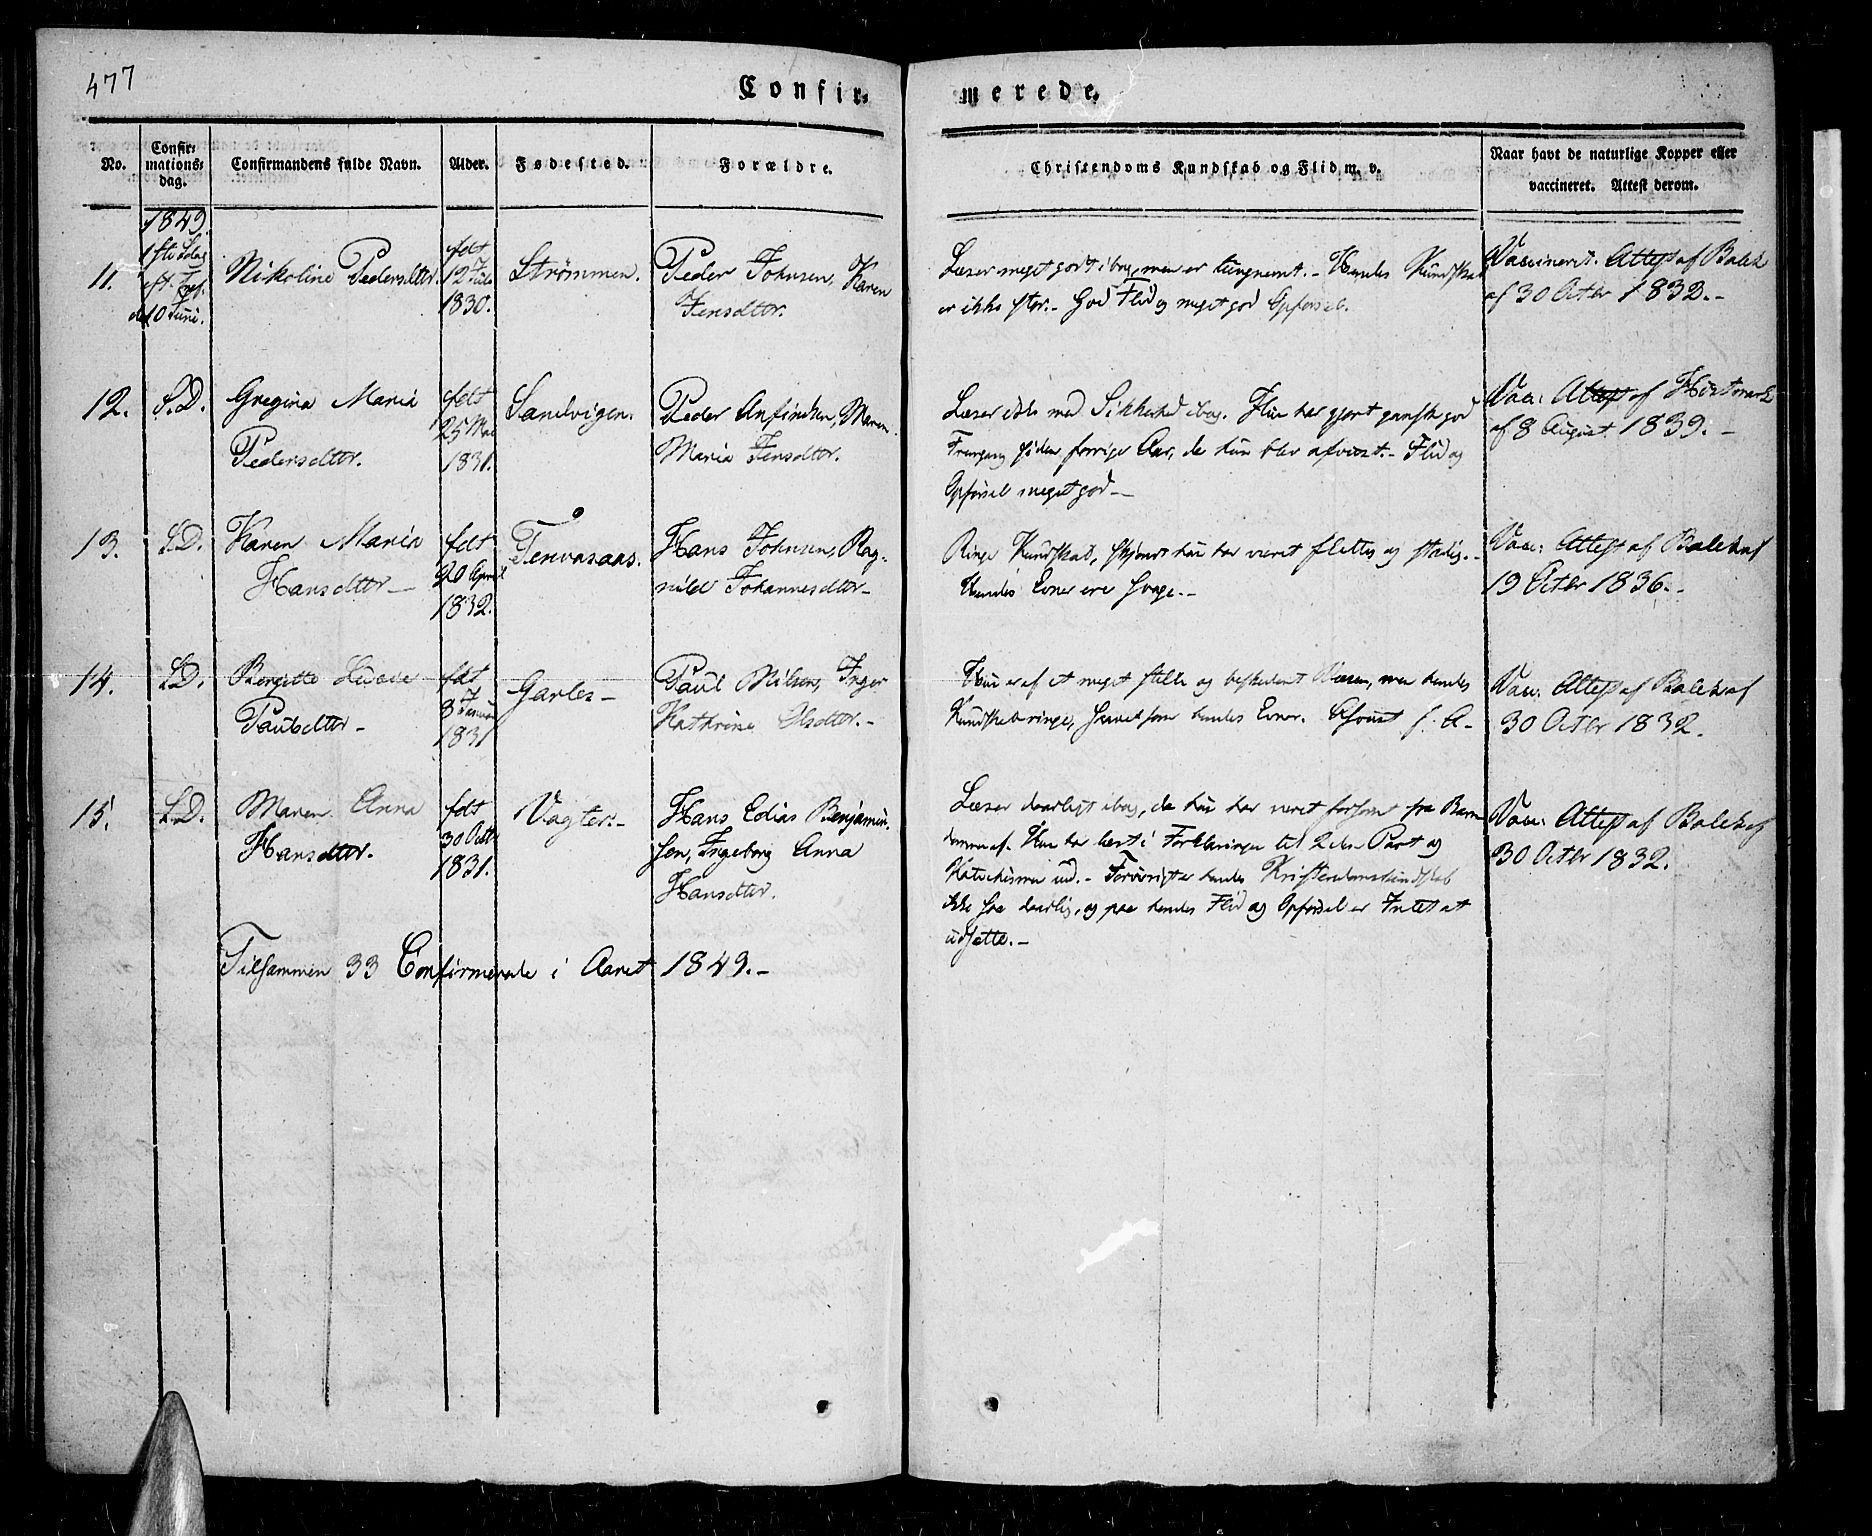 477
Confir-
merede.
No.
Confir-
mations-
dag.
Confirmandens fulde Navn.
Alder.
Fødested.
Forældre.
Christendoms Kundskab og Flid m. v.
Naar havt de naturlige Kopper eller
vaccineret. Attest derom.
1849.
11.
eft. Tref.
10 Juni.
Nikoline Pedersdttr
fdt
12 Juli
1830.
Strömmen.
Peder Johnsen, Karen
Jensdttr.
Læser meget godt i bog, men er tungnemt. - Hendes Kundskab
er ikke stor. - God Flid og meget god Opførsel.
Vaccineret. Attest af Balck
af 30 Octbr 1832. -
12.
S. D.
Gregina Maria
Pedersdttr.
fdt
25 Mai
1831.
Sandvigen.
Peder Anfindsen, Maren
Maria Jensdttr.
Læser ikke med Sikkerhed i bog. Hun har gjort ganske god
Fremgang siden forrige Aar, da hun blev afviist. - Flid og
Opførsel meget god -
Vacc: Attest af
af 8 August 1839. -
13.
S. D.
Karen Maria
Hansdttr -
fdt
20 April
1832.
Tenvasaas.
Hans Johnsen, Rag-
nild Johannesdttr -
Ringe Kundskab, skjønt hun har været flittig og stadig. -
Hendes Evner ere svage. -
Vacc: Attest af Balck af
19 Octbr 1836. -
14.
S. D.
Bergitte
Paulsdttr -
fdt
8 Januar
1831
Garles -
Paul Nilsen, Inger
Kathrine Olsdttr. -
Hun er af et meget stille og beskedent Væsen, men hendes
Kundskab ringe, saavelsom hendes Evner. Afviist f. A -
Vacc: Attest af Balck af
30 Octbr 1832.
15.
S. D.
Maren Anna
Hansdttr.
fdt
30 Octbr
1831.
Vagter. -
Hans Edias Benjamin-
sen, Ingeborg Anna
Hansdttr.
Læser daarligt i bog, da hun har været forsømt fra Barn-
dommen af. Hun har læst i Forklaringen til 2den Part og
Katechismen ud. - Forøvrigt er hendes Kristendomskundskab
ikke saa daarlig, og paa hendes Flid og Opførsel er Intet at
udsette. -
Vacc: Attest af Balck af
30 Octbr 1832.
Tilsammen 33 Confirmerede i Aaret 1849. -